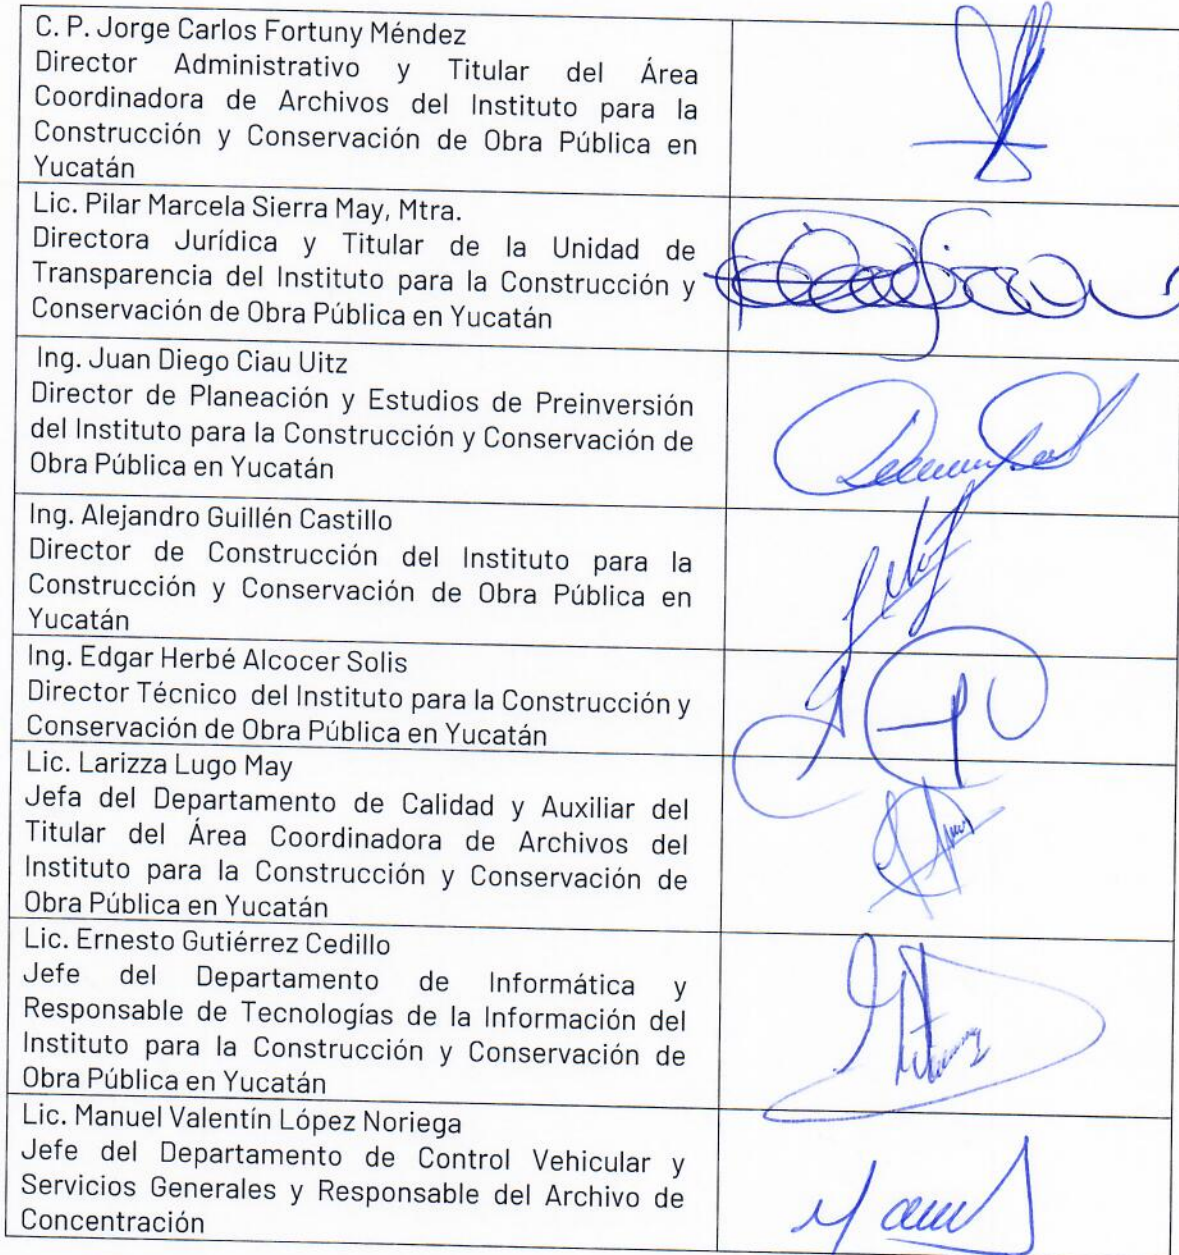 C. P. Jorge Carlos Fortuny Méndez
Director Administrativo y Titular del Área
Coordinadora de Archivos del Instituto para la
Construcción y Conservación de Obra Pública en
Yucatán
Lic. Pilar Marcela Sierra May, Mtra.
Directora Jurídica y Titular de la Unidad de
Transparencia del Instituto para la Construcción y
Conservación de Obra Pública en Yucatán
Ing. Juan Diego Ciau Uitz
Director de Planeación y Estudios de Preinversión
del Instituto para la Construcción y Conservación de
Obra Pública en Yucatán
Ing. Alejandro Guillén Castillo
Director de Construcción del Instituto para la
Construcción y Conservación de Obra Pública en
Yucatán
Ing. Edgar Herbé Alcocer Solis
Director Técnico del Instituto para la Construcción y
Conservación de Obra Pública en Yucatán
Lic. Larizza Lugo May
Jefa del Departamento de Calidad y Auxiliar del
Titular del Área Coordinadora de Archivos del
Instituto para la Construcción y Conservación de
Obra Pública en Yucatán
Lic. Ernesto Gutiérrez Cedillo
Jefe del Departamento de Informática y
Responsable de Tecnologías de la Información del
Instituto para la Construcción y Conservación de
Obra Pública en Yucatán
Lic. Manuel Valentín López Noriega
Jefe del Departamento de Control Vehicular y
Servicios Generales y Responsable del Archivo de
Concentración